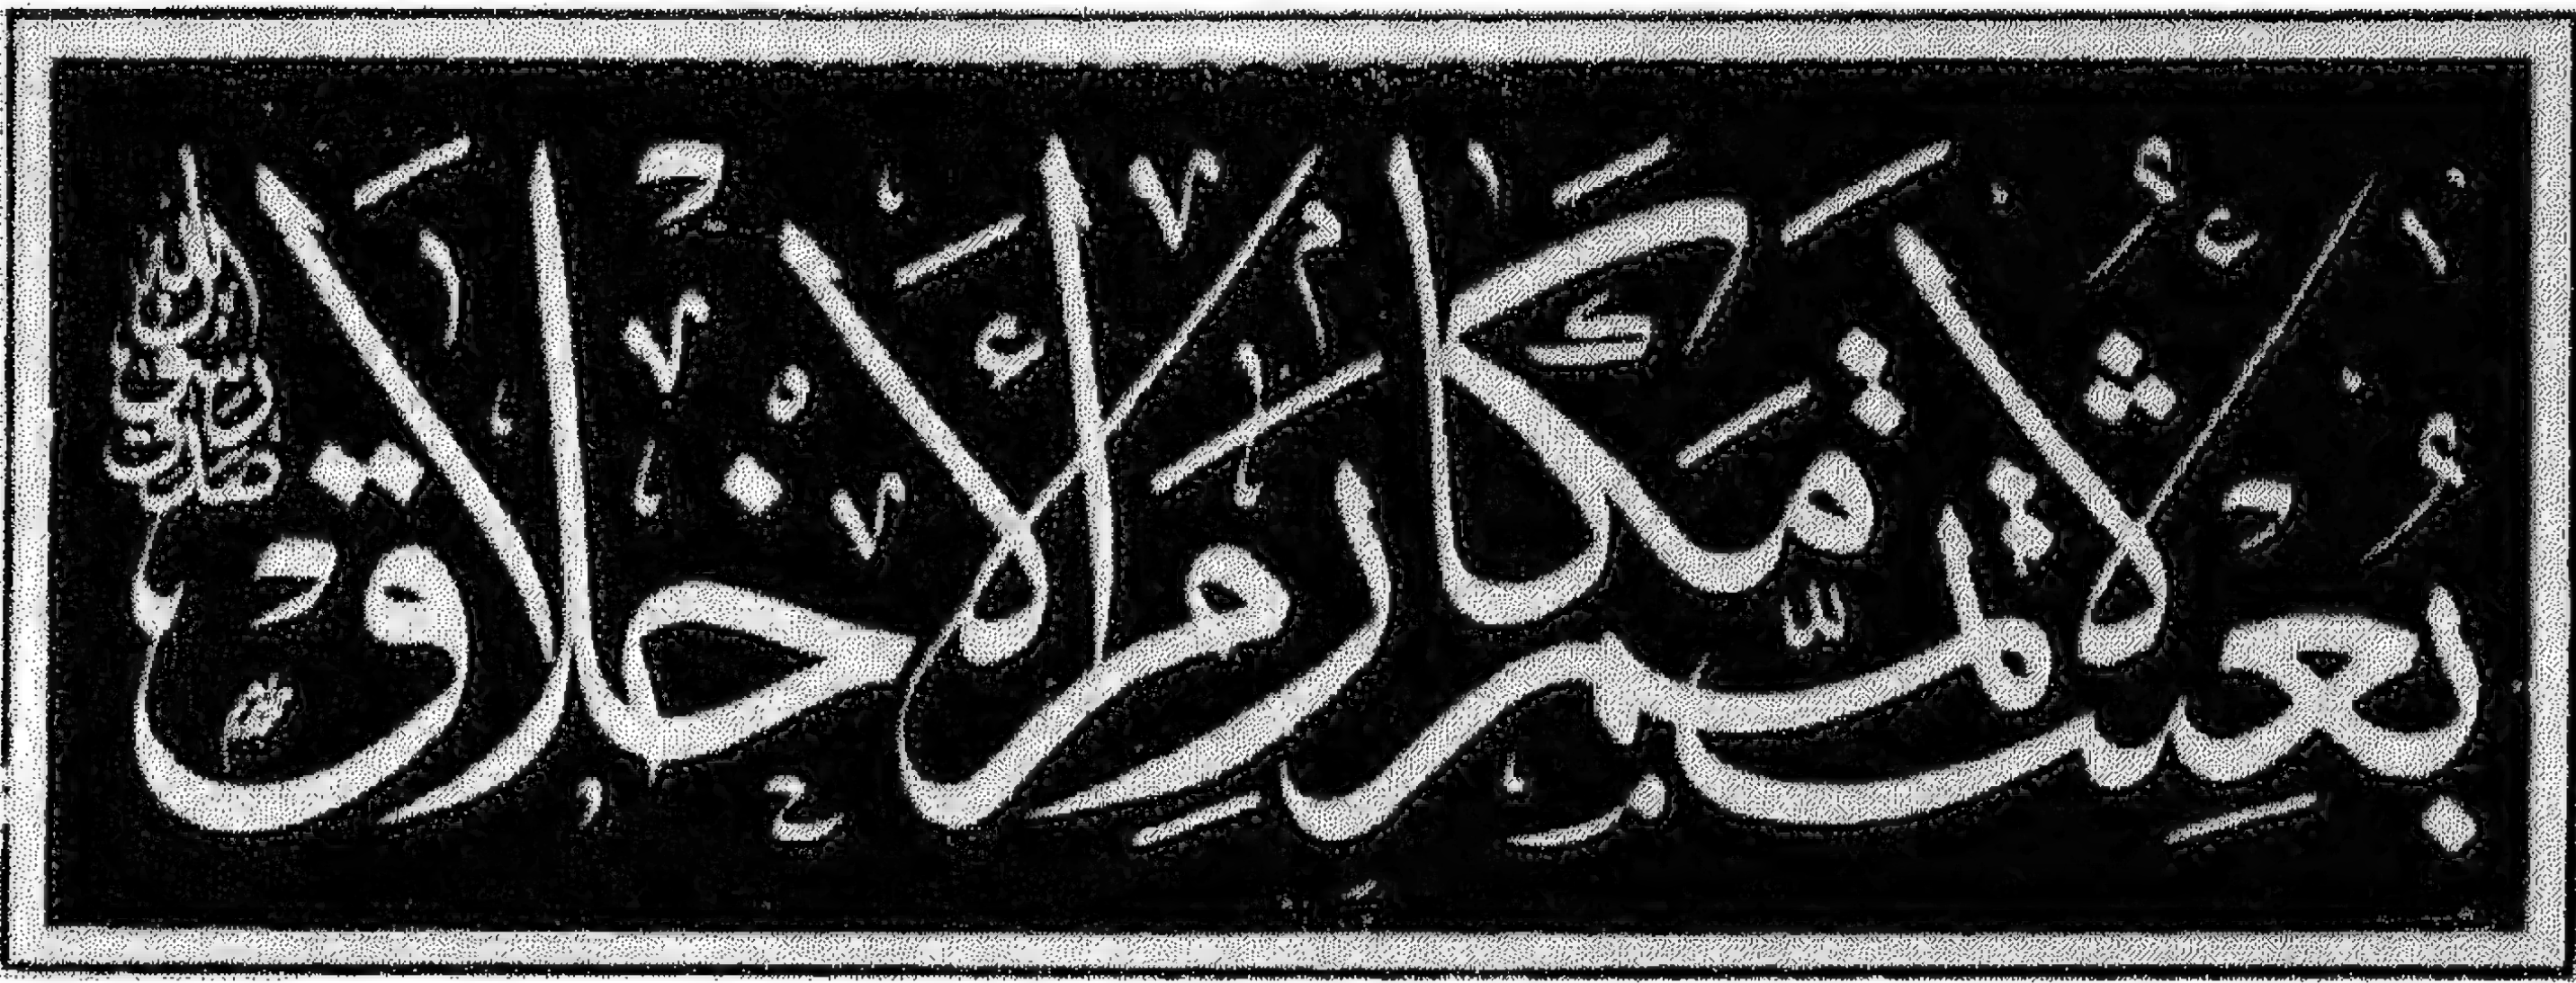 بعثت لاتمم مكارم الاخلاق